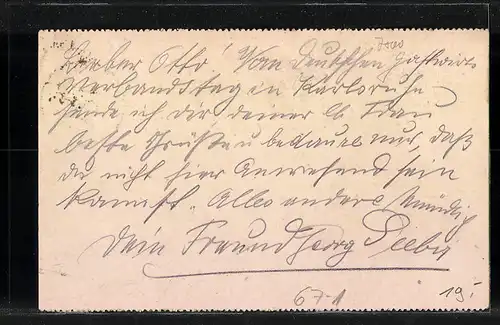 Lieber Otto! Vom Deutschen Gastwirts
Verbandstag in Karlsruhe
sende ich dir deiner lb Frau
beste Grüße u bedaure nur, daß
du nicht hier Anwesend sein
kannst. Alles andere Mündig
Dein Freund Georg
67-1
19.-